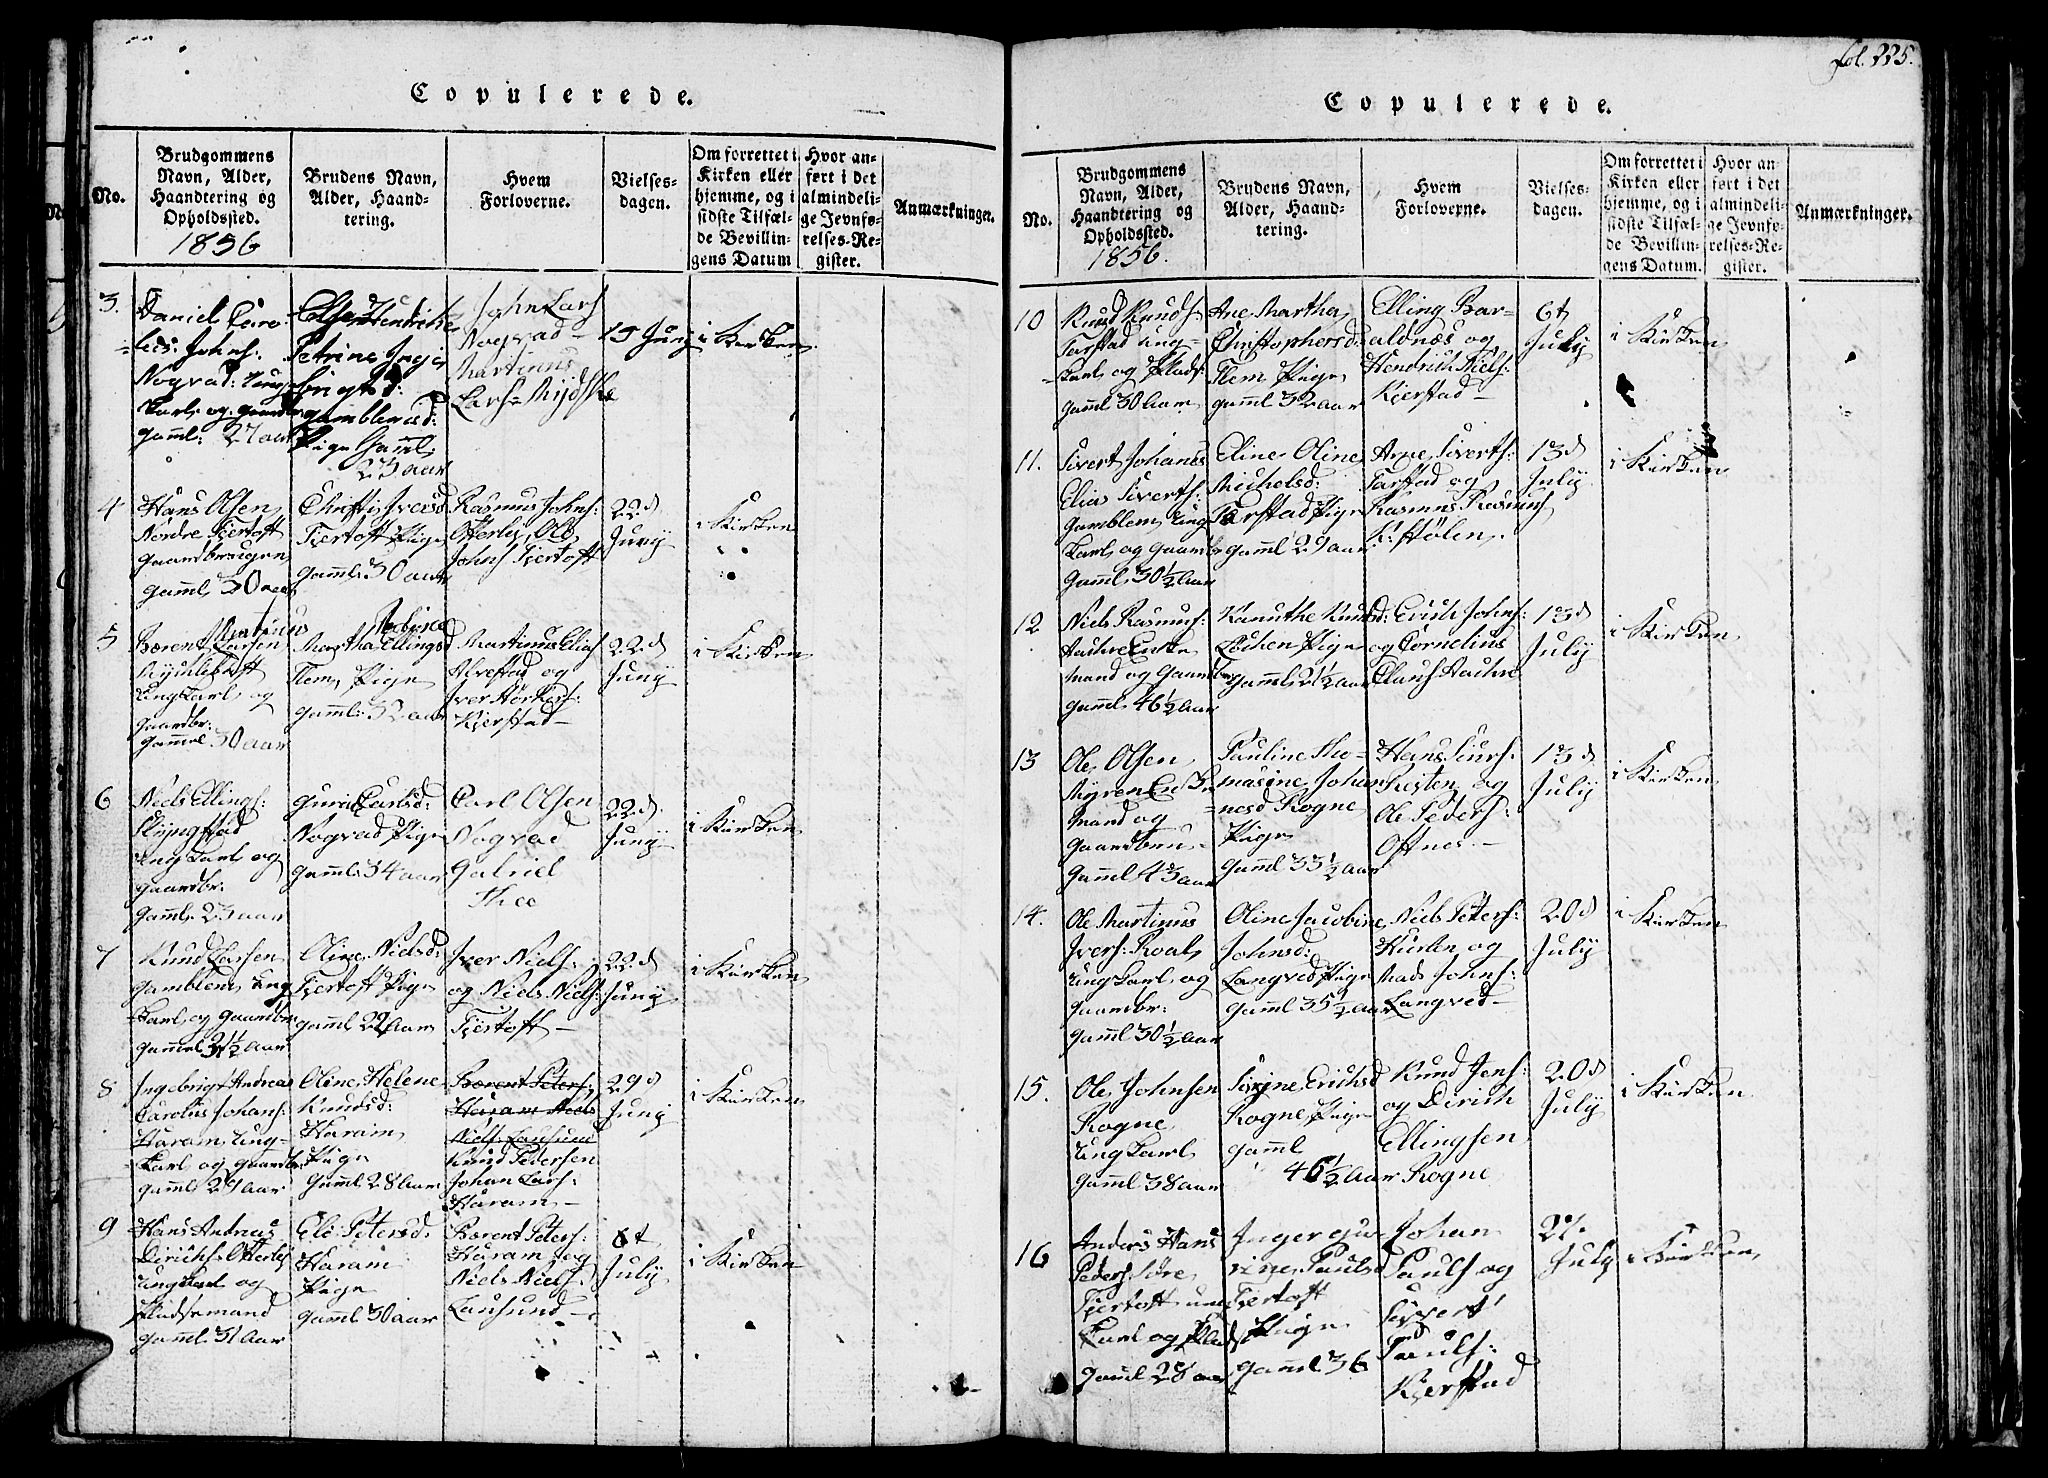 Copulerede.
No.
Brudgommens
Navn, Alder,
Haandtering og
Opholdssted.
1856
Brudens Navn,
Alder, Haand-
tering.
Hvem
Forloverne.
Vielses-
dagen.
Om forrettet i
Kirken eller
hjemme, og i
sidste Tilfæl-
de Bevillin-
gens Datum
Hvor an-
ført i det
almindeli-
ge Jevnfø-
relses-Re-
gister.
Anmærkninger.
3.
Daniel Caro-
Johns:
Nogvad: Ung-
Karl og
gaml: 27 aar
Petrine Inge-
brigtsd:
Gamblemsd:
Pige Gaml
23 aar
John Lars
Nogvad -
Martinus
15 Juny
i Kirken
4
Hans Olsen
Nordre Fjertoft
Gaardbrugen
gaml 30 aar
Christi Iversd
Fjertoft Pige
gaml 30 aar
Rasmus Johns:
Otterley, Ole
Johns Fjertoft
22d
Juny
i Kirken
5
Martinus
Berent Larsen
Ung Karl og
gaardbr:
gammel 30 aar
Martha Ellingsd
Flem, Pige
gaml: 32 aar
Martinus Elias
Alvestad og
Iver
Kjerstad -
22d
Juny
i Kirken
6
Niels Ellings:
Ung Karl og
gaardbr:
gaml 23 aar
Guri Carlsd:
Nogvad Pige
gaml 34 aar
Carl Olsen
Nogvad
Gabriel
22d.
Juny
i Kirken
7
Knud Larsen
Gamblem Ung
Karl og gaardbr
Oline Nielsd:
Fjertoft Pige
gaml 22 aar
Iver Niels:
og Niels Niels:
Fjertoft -
22d
Juny
i Kirken
8
Ingebrigt Andreas
Carolus Johans:
Haram Ung-
Karl og gaardbr
gaml 29 aar
Oline Helene
Knudsd:
Haram
Pige
gaml 28 aar
Berent Peters:
Haram Niels
Niels: Lausund
Knud Pedersen
Johan Lars:
Haram -
29d
Juny
i Kirken
9
Hans Andreas
Dirichs: Otterley
Ung Karl og
Pladsemand
gaml 31 Aar
Ele Petersd:
Haram
Pige
gaml 30 aar
Berent Peters:
Haram og
Niels Niels:
Lausund -
6t
July
i Kirken
fol. 225.
Copulerede.
No.
Brudgommens
Navn, Alder,
Haandtering og
Opholdssted.
1856.
Brudens Navn,
Alder, Haand-
tering.
Hvem
Forloverne.
Vielses-
dagen.
Om forrettet i
Kirken eller
hjemme, og i
sidste Tilfæl-
de Bevillin-
gens Datum.
Hvor an-
ført i det
almindeli-
ge Jevnfø-
relses-Re-
gister.
Anmærkninger.
10
Knud Knuds
Tarstad Ung-
Karl og Plads:
gaml 30 Aar
Ane Martha
Christophersd:
Flem Pige
gaml 32 aar
Elling Bar-
aldnæs og
Hendrich Niels:
Kjerstad -
6t
July
i Kirken
11.
Sivert Johanes
Elias Siverts:
Gamblem, Ung
Karl og gaardbr
gaml 30 1/2 Aar
Eline Oline
Nicholsd:
Tarstad Pige
gaml 29 aar
Arne Siverts:
Tarstad og
Rasmus Rasmus
13d
July
i Kirken
12
Niels Rasmus:
Enke
mand og gaardbr
gaml 46 1/2 Aar
Kanuthe Knudsd:
Pige
gaml 21 1/2 aar
Erich Johns:
og Cornelius
13d
July
i Kirken
13
Ole Olsen
Myren Enke
mand og
gaardbru-
gaml 43 aar
Pauline Tho-
masine Johan-
nesd Rogne
Pige
gaml 33 1/2 aar
Hans Siurs:
og
Ole Peders:
Oftnes. -
13d
July
i Kirken
14.
Ole Martinus
Ivers: Roal
Ung Karl og
gaardbr:
gaml 30 1/2 Aar
Oline Jacobine
Johnsd:
Langved Pige
gaml 35 1/2 aar
Niels Peters:
og
Mads Johns:
Langved -
20d
July
i Kirken
15.
Ole Johnsen
Rogne
Ung Karl
gaml 38 aar
Erichsd
Rogne, Pige
gaml
46 1/2 Aar
Knud Jens:
og Dirich
Ellingsen
Rogne
20d
July
i Kirken
16
Anders Hans
Peders: Søre
Fjertoft ung
Karl og Plads
gaml 28 aar
Inger Gu-
rine Paulsd
Fjertoft
Pige
gaml 36
Johan
Pauls og
Sivert
Pauls:
Kjerstad
27
July
i Kirken